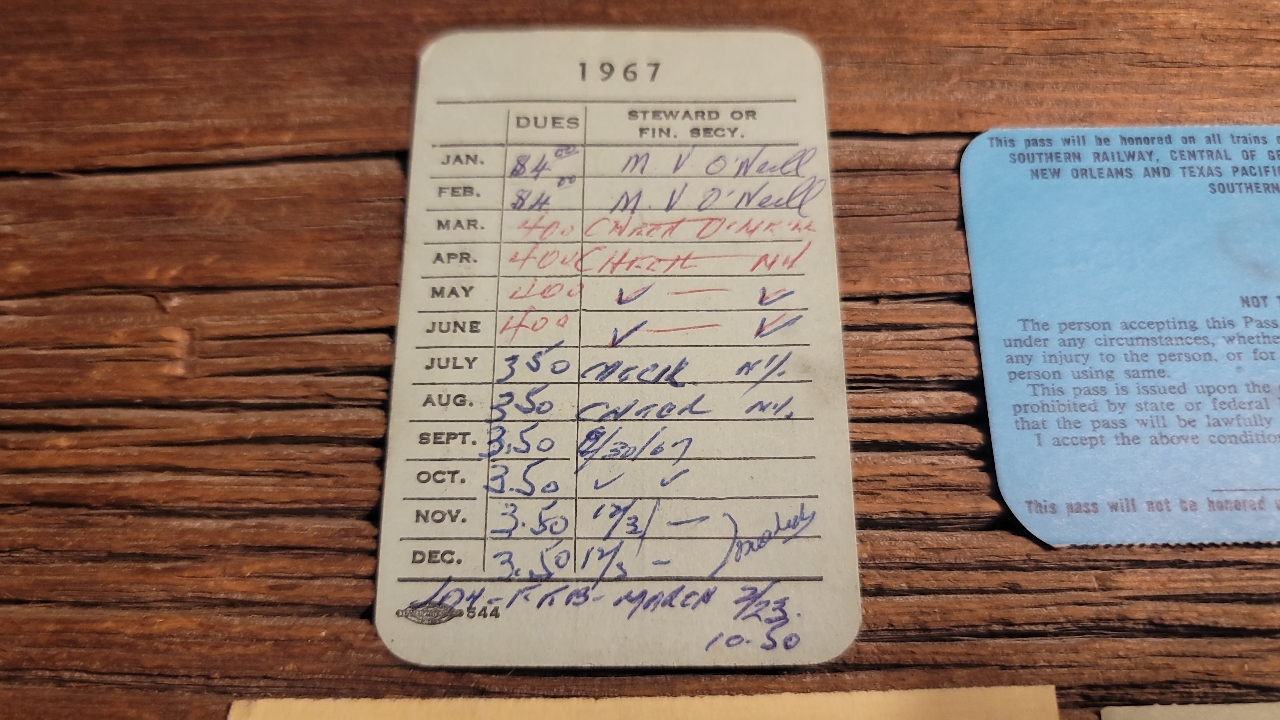 1967
DUES STEWARD OR FIN. SECY.
JAN. $4.00 M V O'Neill
FEB. $4.00 M. V O'Neill
MAR. 4.00
APR. 4.00
MAY 4.00 ✓ — ✓
JUNE 4.00 ✓ — ✓
JULY 3.50
AUG. 3.50
SEPT. 3.50 9/30/67
OCT. 3.50 ✓ ✓
NOV. 3.50 —
DEC. 3.50 —
FEB - MARCH
544
10.50
This pass will be honored on all trains
SOUTHERN RAILWAY, CENTRAL OF
NEW ORLEANS AND TEXAS PACIFI
SOUTHERN
NOT
The person accepting this Pass
under any circumstances, whethe
any injury to the person, or for
person using same.
This pass is issued upon the
prohibited by state or federal
that the pass will be lawfully
I accept the above condition
This pass will not be honored